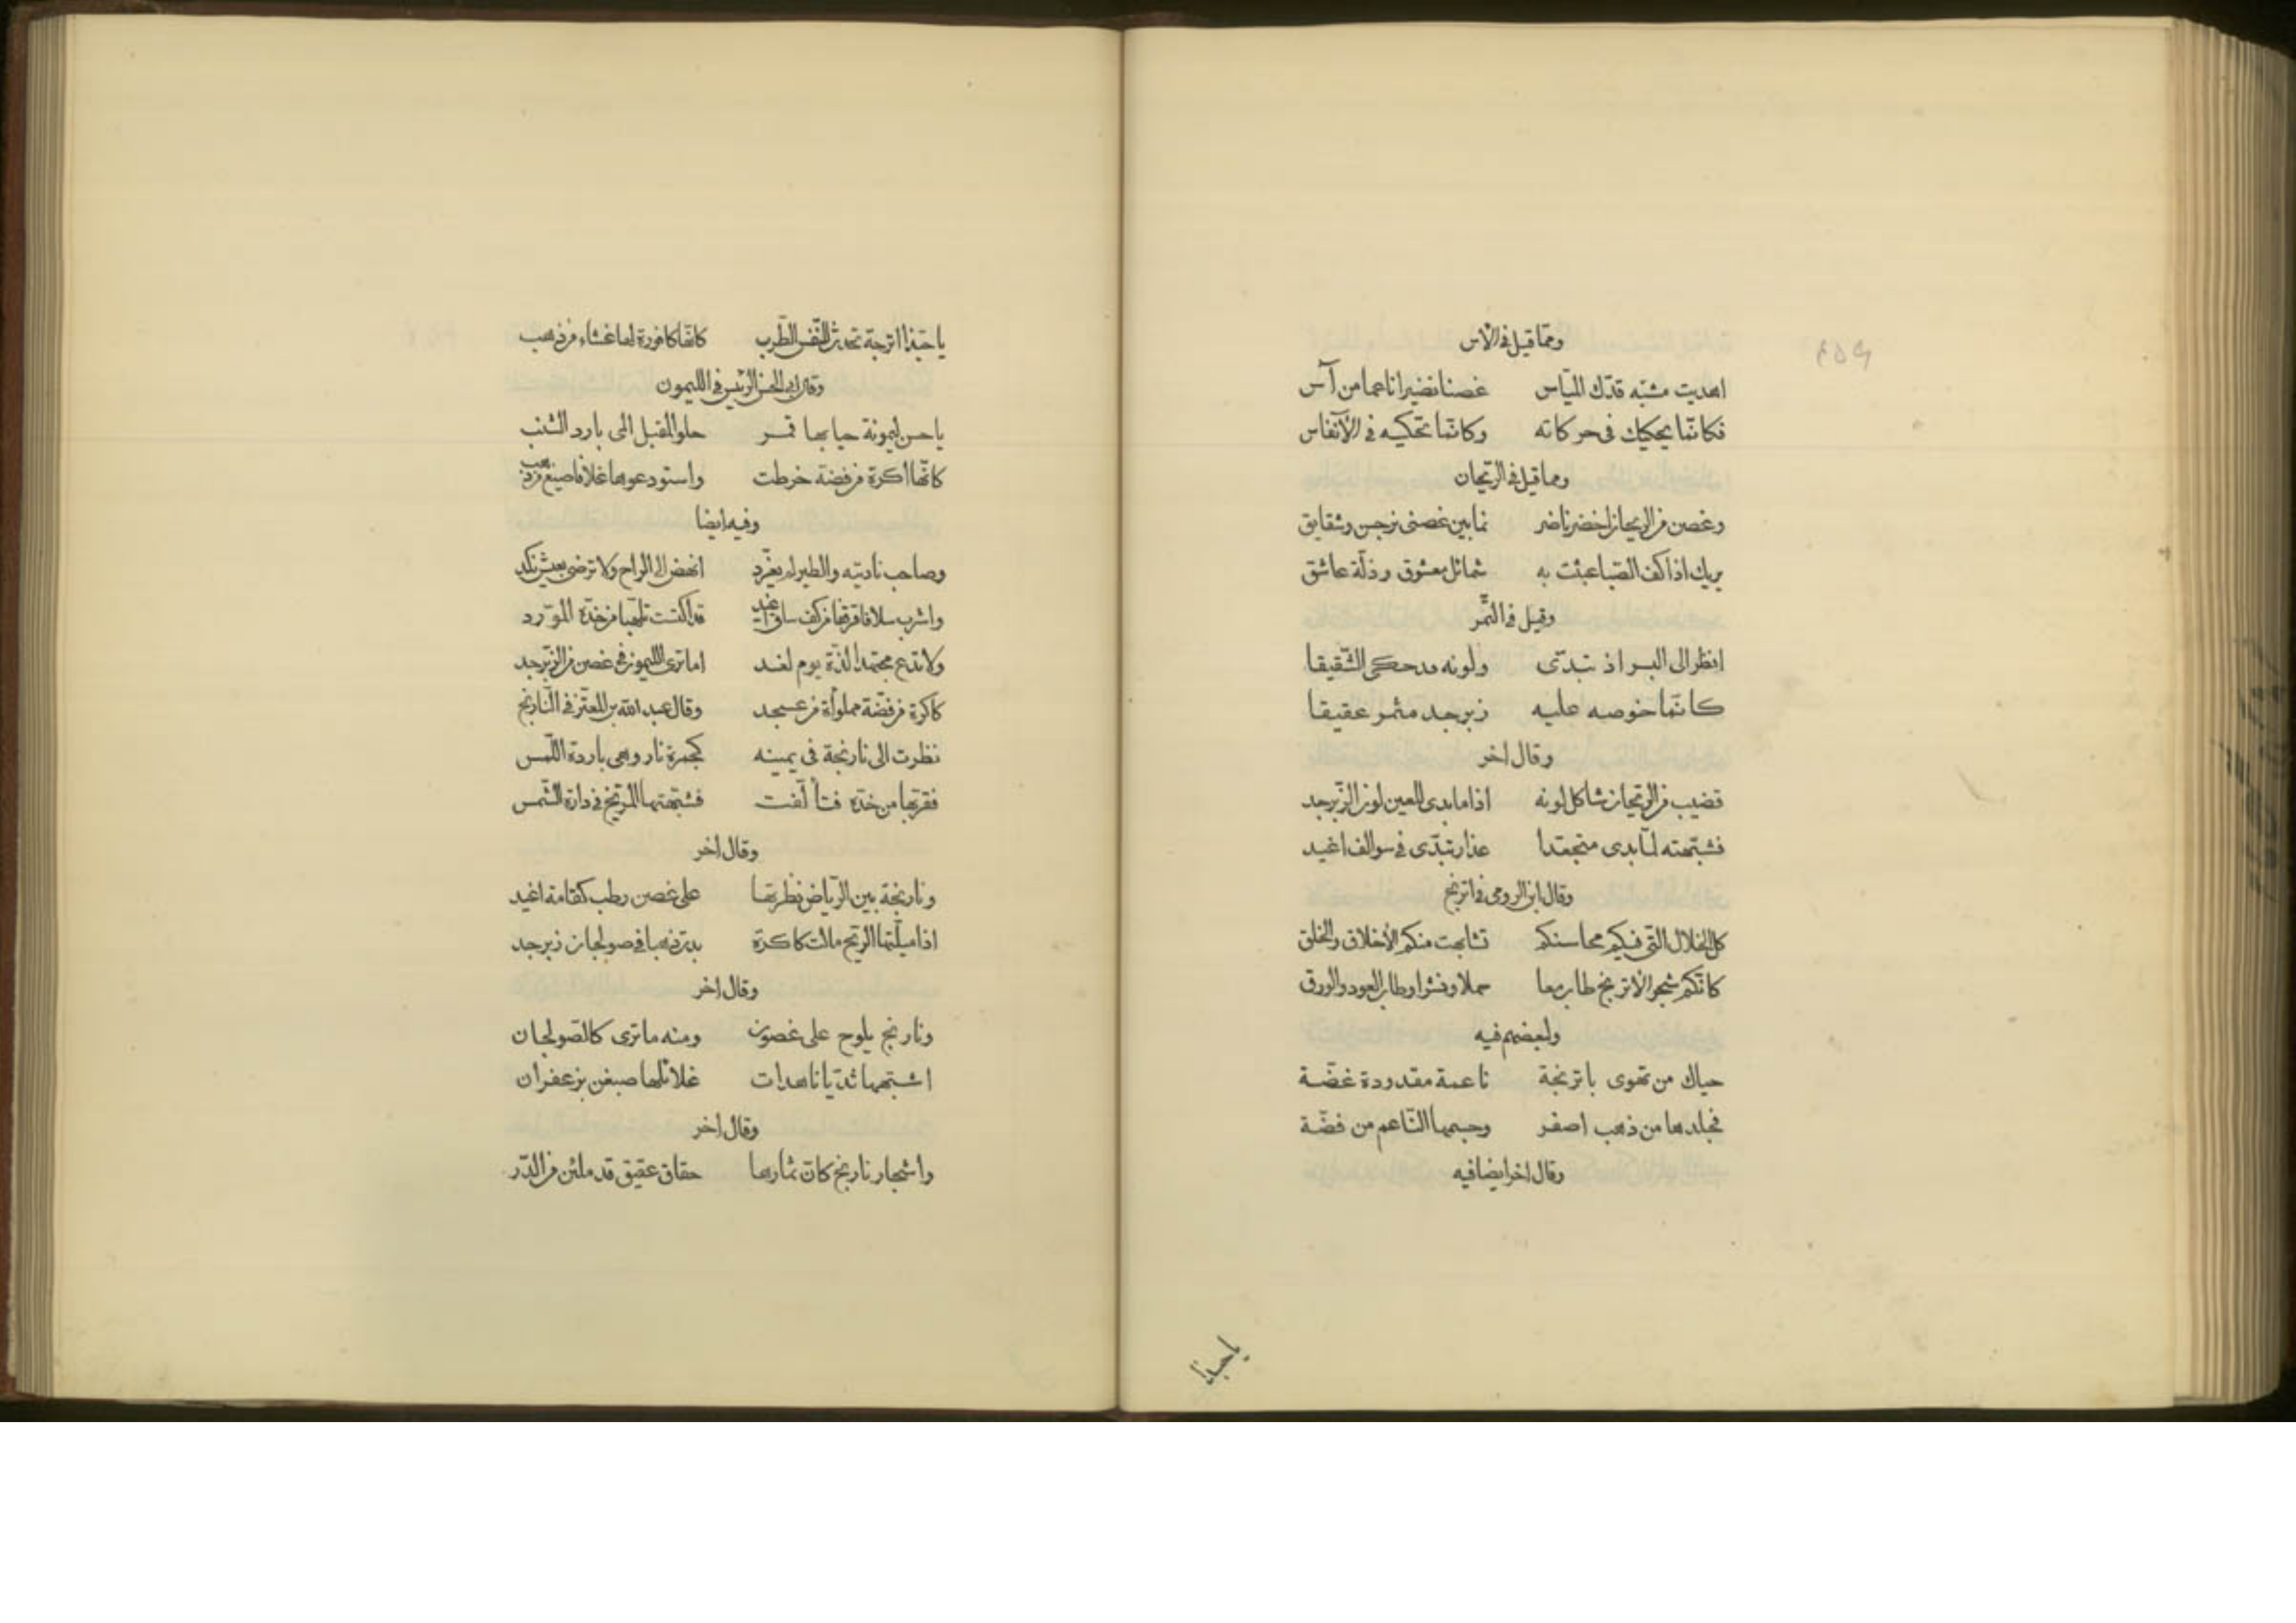 ومما قيل في الآس
اهديت مشبه قدّك الميّاس غصنا نضيرا ناعما من آس
فكانّما يحكيك في حركاته وكانّما تحكيه في الأنفاس
ومما قيل في الريحان
وغصن من الريحان اخضر ناضر نما بين غصنى نرجس وشقايق
يريك اذا كف الصّبا عبثت به شمائل معشوق وذلّة عاشق
وقيل في التّمر
انظر الى البسر اذ تبدّى ولونه قد حكى الشّقيقا
كانّما خوصه عليه زبرجد مثمر عقيقا
وقال اخر
قضيب من الرّيحان شاكل لونه اذا ما بدى للعين لون الزّبرجد
فشبّهته لمّا بدى متجعّدا عذار تبدّى في سوالف اغيد
وقال ابن الرومى في اترنج
كل الخلال التّى فيكم محاسنكم تشابهت منكم الأخلاق والخلق
كانّكم شجر الاترنج طاب معا حملا ونشرا وطاب العود والورق
ولبعضهم فيه
حياك من تهوى باترنجة ناعمة مقدودة غضّة
فجلدها من ذهب اصفر وجسمها النّاعم من فضّة
وقال اخر ايضا فيه
ياحبذا
ياحبّذا اترجة تحدث للنّفس الطّرب كانّها كافورة لها غشاء من ذهب
الحسن الرئيس في الليمون
ياحسن ليمونة حيا بها قمر حلو المقبل المى بارد الشنب
كانّها اكرة من فضة خرطت واستودعوها غلافا صيغ من ذهب
وفيه ايضا
وصاحب ناديته والطير لم يغرّد انهض الى الراح ولا ترضى بعيش نكد
واشرب سلافا قرقفا من كف ساق اغيد قد اكتست تلهّبا من خدّه المورّد
ولا تدع مجتهدا لذّة يوم لغد اما ترى الليمون في غصن من الزبرجد
كاكرة من فضّة مملوأة من عسجد وقال عبد الله بن المعتّز في النّارنج
نظرت الى نارنجة في يمينه كجمرة نار وهى باردة اللّمس
فقرّبها من خدّه فتألّفت فشبّهتها المرّيخ في دارة الشّمس
وقال اخر
ونارنجة بين الرّياض نظرتها على غصن رطب كقامة اغيد
اذا ميلّتها الرّيح مالت كاكرة بدت ذهبا في صولجان زبرجد
وقال اخر
ونارنج يلوح على غصون ومنه ما ترى كالصّولجان
اشبّهها ثديّا ناهدات غلائلها صبغن بزعفران
وقال اخر
واشجار نارنج كانّ ثمارها حقاق عقيق قد ملئن من الدّر